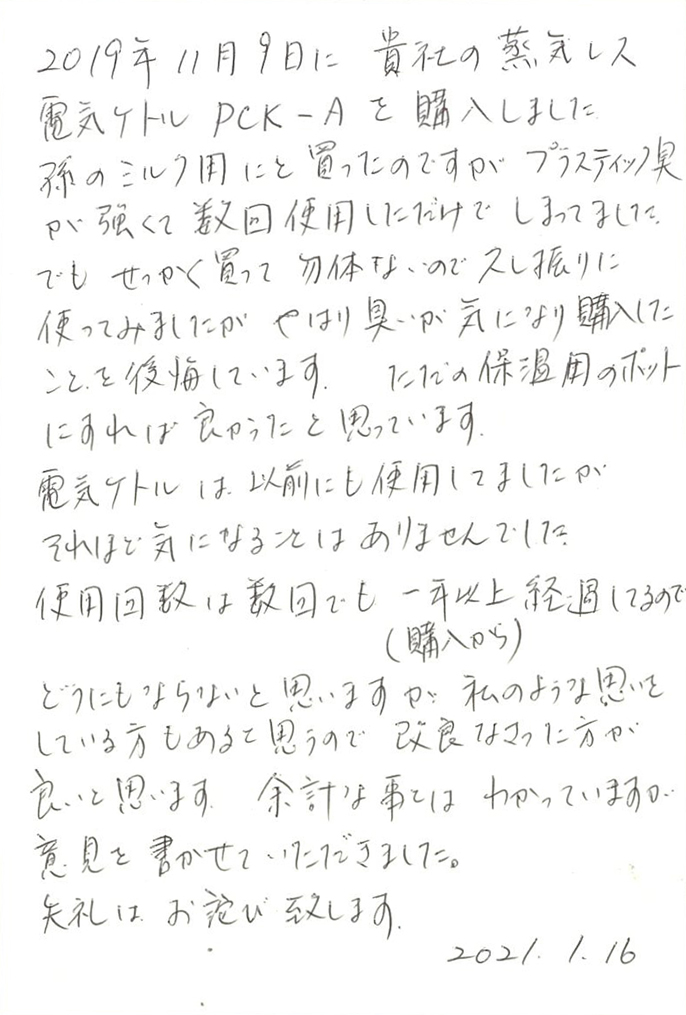 2019年11月9日に 貴社の蒸気レス
電気ケトル PCK-Aを購入しました
孫のミルク用にと買ったのですが プラスティック臭
が強くて数回使用しただけで しまってました。
でも せっかく買って勿体ないので久し振りに
使ってみましたが やはり臭いが気になり購入した
ことを後悔しています。 ただの保温用のポット
にすれば良かったと思っています。
電気ケトルは以前にも使用してましたが
それほど気になることはありませんでした。
使用回数は数回でも 一年以上経過してるので
(購入から)
どうにもならないと思いますが 私のような思いを
している方もあると思うので 改良なさった方が
良いと思います。 余計な事とは わかっていますが
意見を書かせていただきました。
失礼は お詫び致します。
2021.1.16